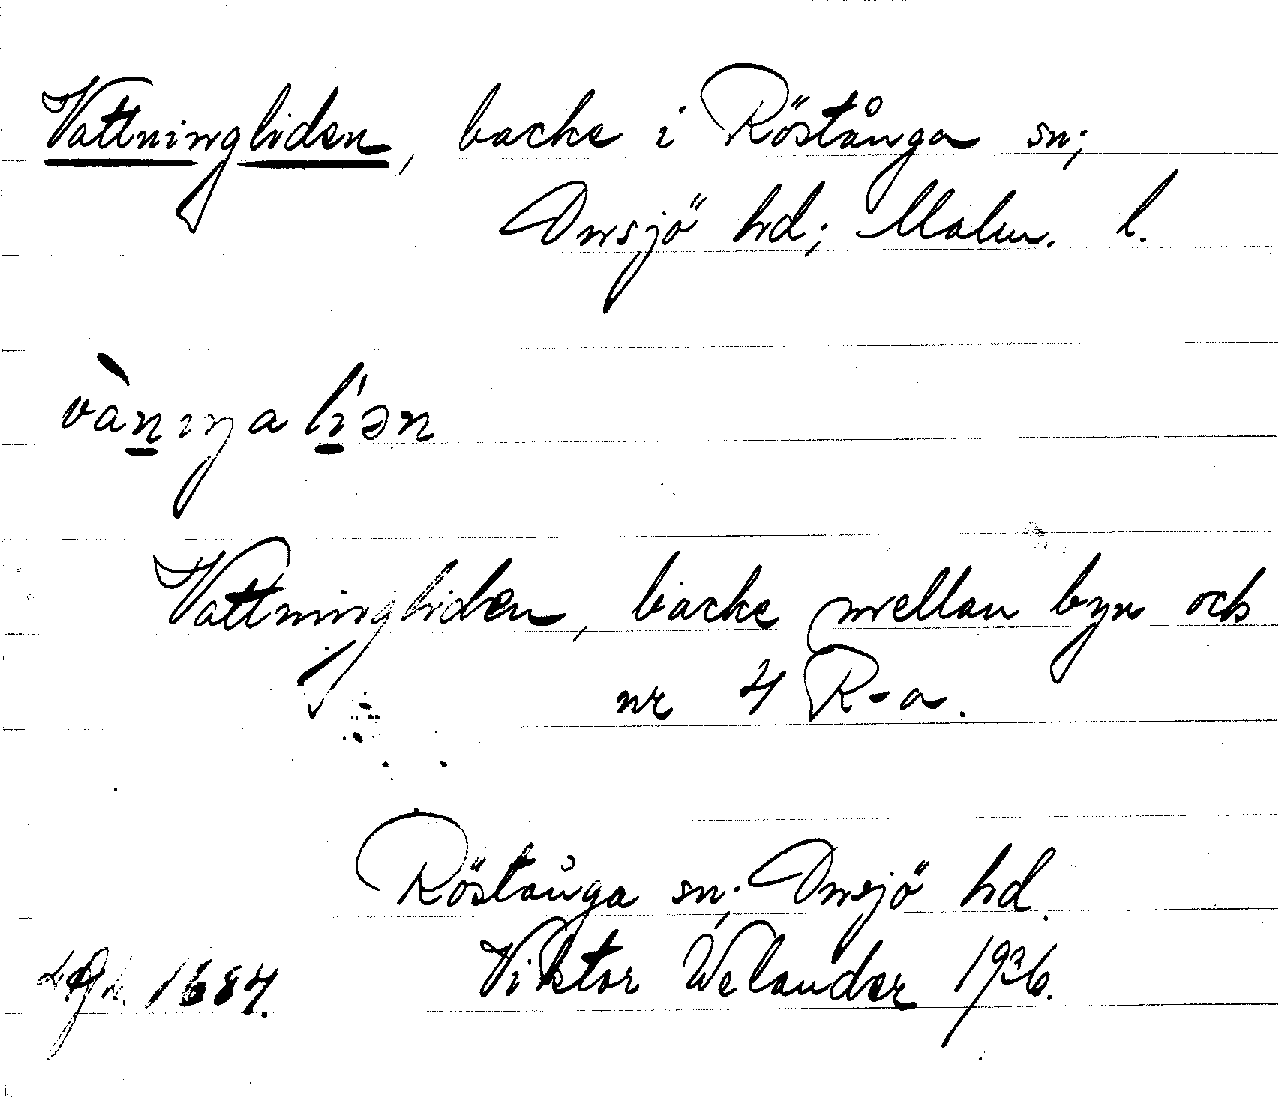 Vattningliden, backe i Röstånga sn;
Onsjö hd; Malm. l.
vàn̲ıŋa lí̲ən
Vattningliden, backe mellan byn och
nr 4 R-a.
Röstånga sn; Onsjö hd.
1684. Viktor Welander 1936.